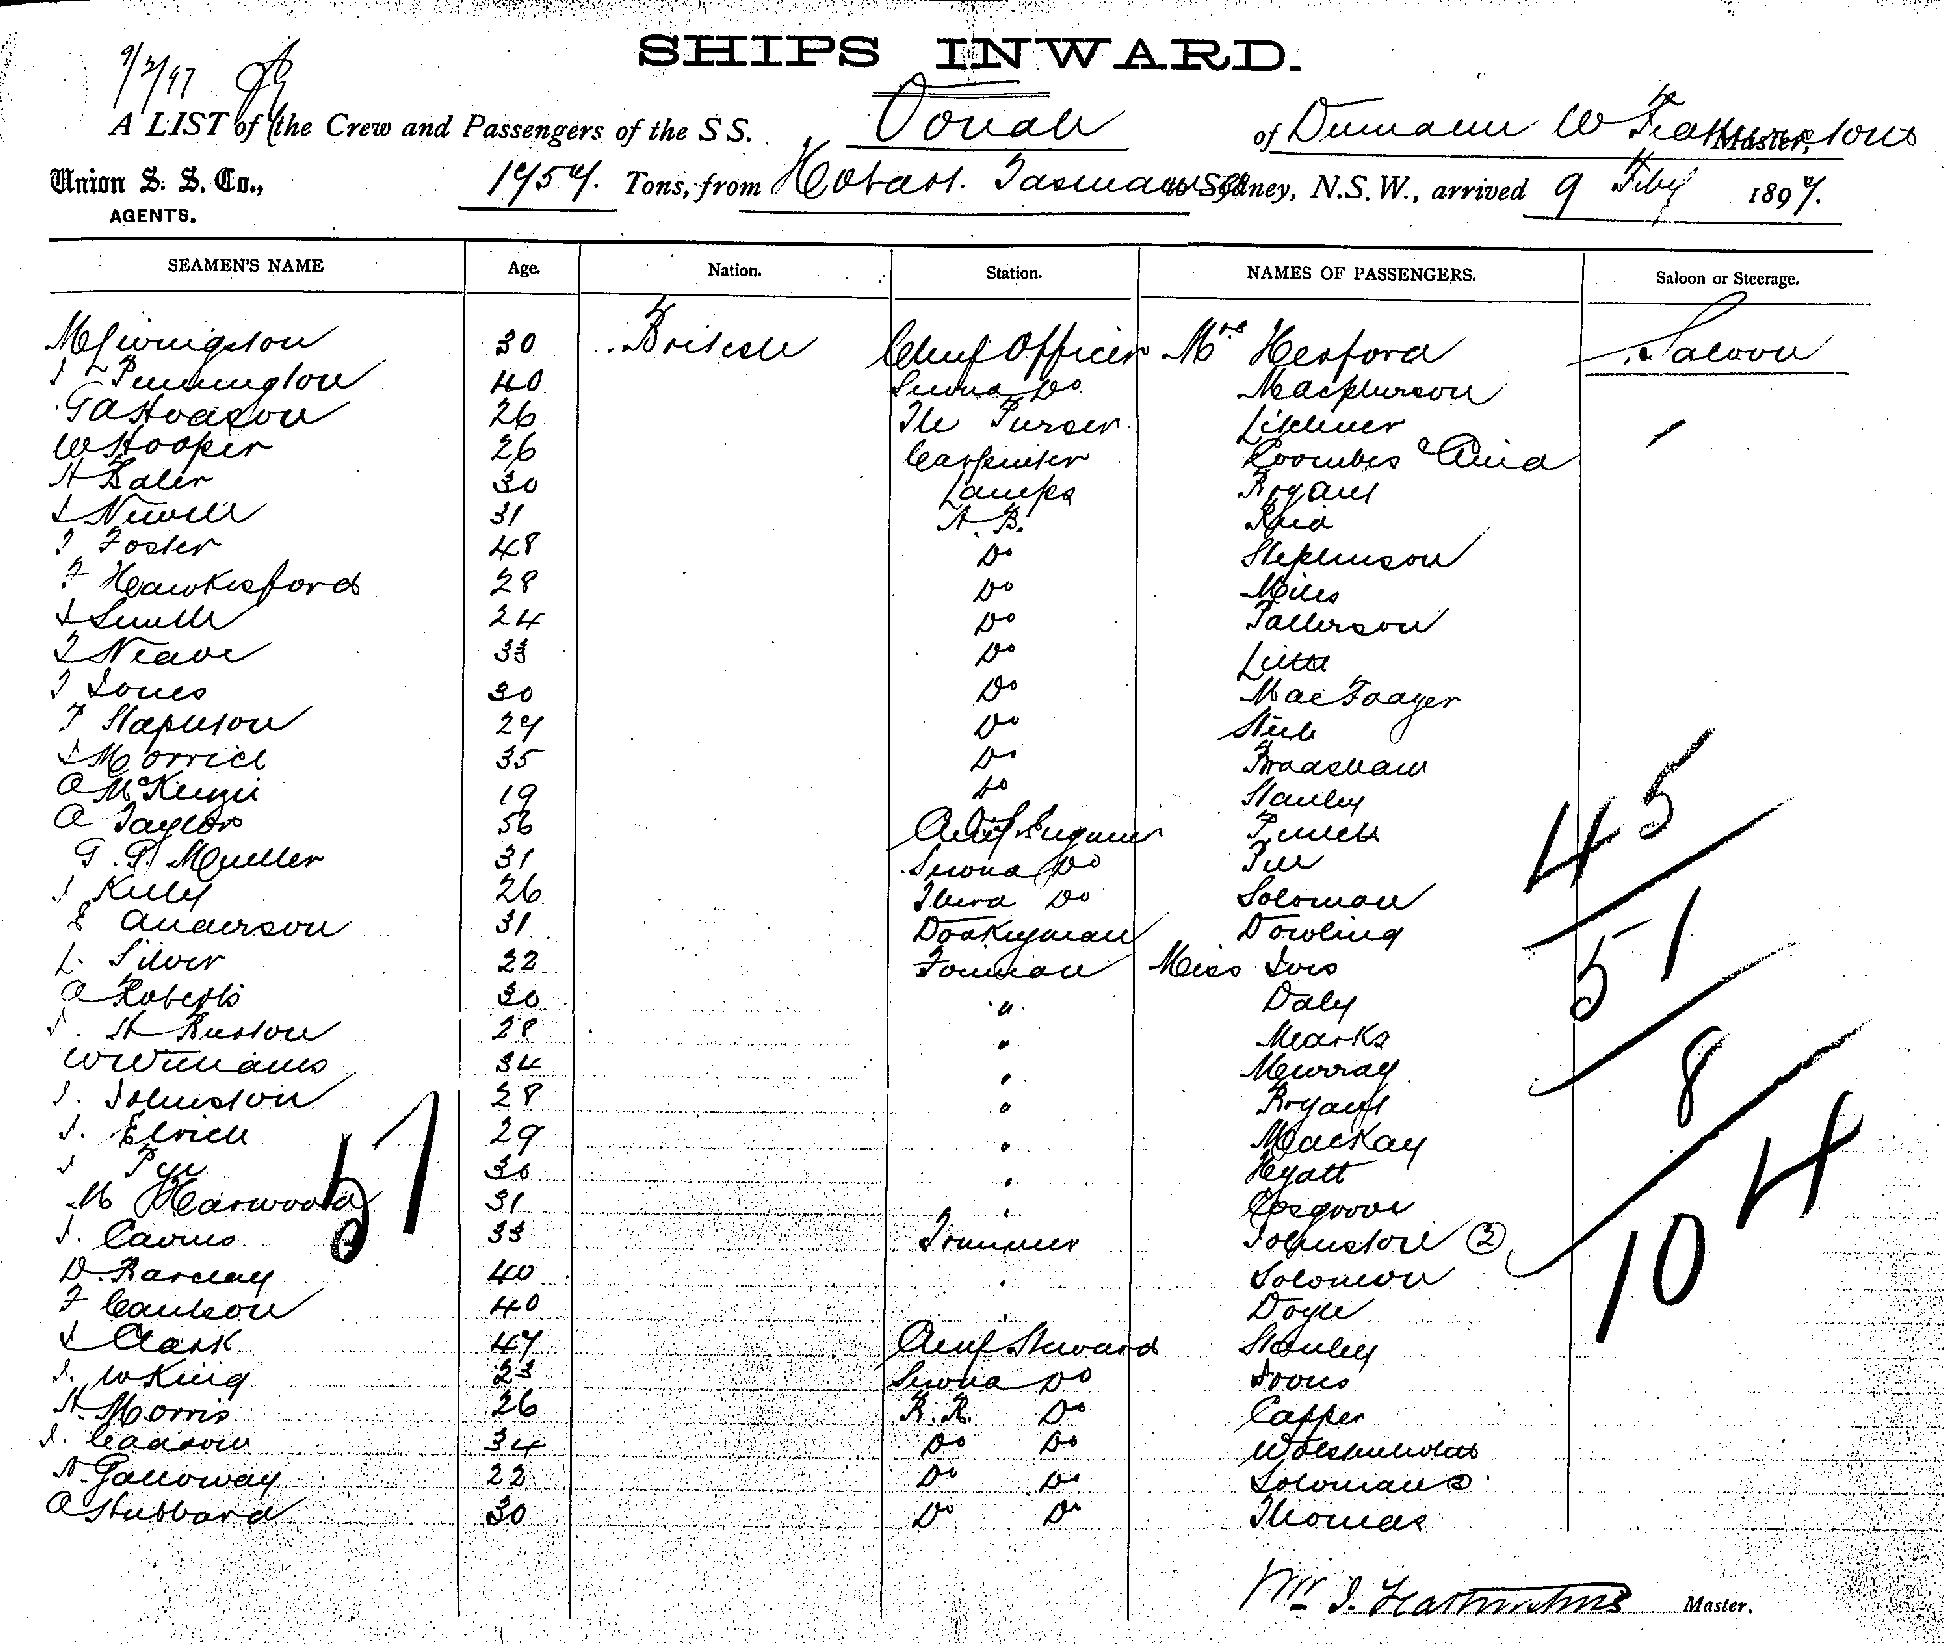 SHIPS INWARD.
9/2/97
A LIST of the Crew and Passengers of the S S. Oonah of Dunedin W Featherstone Master,
Union S. S. Co., AGENTS. 1757. Tons, from Hobart. Tasmania to Sydney, N.S.W., arrived 9 Feby 1897.
SEAMEN'S NAME Age. Nation. Station. NAMES OF PASSENGERS. Saloon or Steerage.
M Livingston 30 British Chief Officer Mrs Hesford Saloon
Pennington 40 Second Do Macpherson
G A Hodson 26 Purser
W Hooper 26 Carpenter Coombes & Child
H Baler 30 Lamps Bryant
J Newell 31 A. B. Reid
J Foster 48 Do Stephenson
F Hawkesford 28 Do Miles
J Smith 24 Do Patterson
J Neave 33 Do Little
J Jones 30 Do
T Stapleton 27 Do Steele
J Morrice 35 Do Bradshaw
A McKenzie 19 Do Stanley
A Taylor 56 Chief Engineer Punch
G. P. Mueller 31 Second Do
J Kelly 26 Third Do Solomon
E Anderson 31 Donkeyman Dowling
L. Silver 22 Foreman Miss Ivis
A Roberts 30 " Daly
J. H Burton 28 " Marks
W Williams 34 " Murray
J. Johnston 28 " Bryant
J. Elrick 29 " MacKay
J Pye 30 " Hyatt
M Harwood 31 " Cosgrove
J. Cairns 33 Trimmer Johnston (2)
D. Barclay 40 " Solomon
F Coulson 40 " Doyle
J Clark 47 Chief Steward Stanley
J. W King 23 Second Do
H. Morris 26 B. R. Do Capper
J. Cadson 34 Do Do
H. Galloway 22 Do Do Solomans
A Hubbard 30 Do Do Thomas
57
45
51
8
104
Wm J. Featherstone Master.